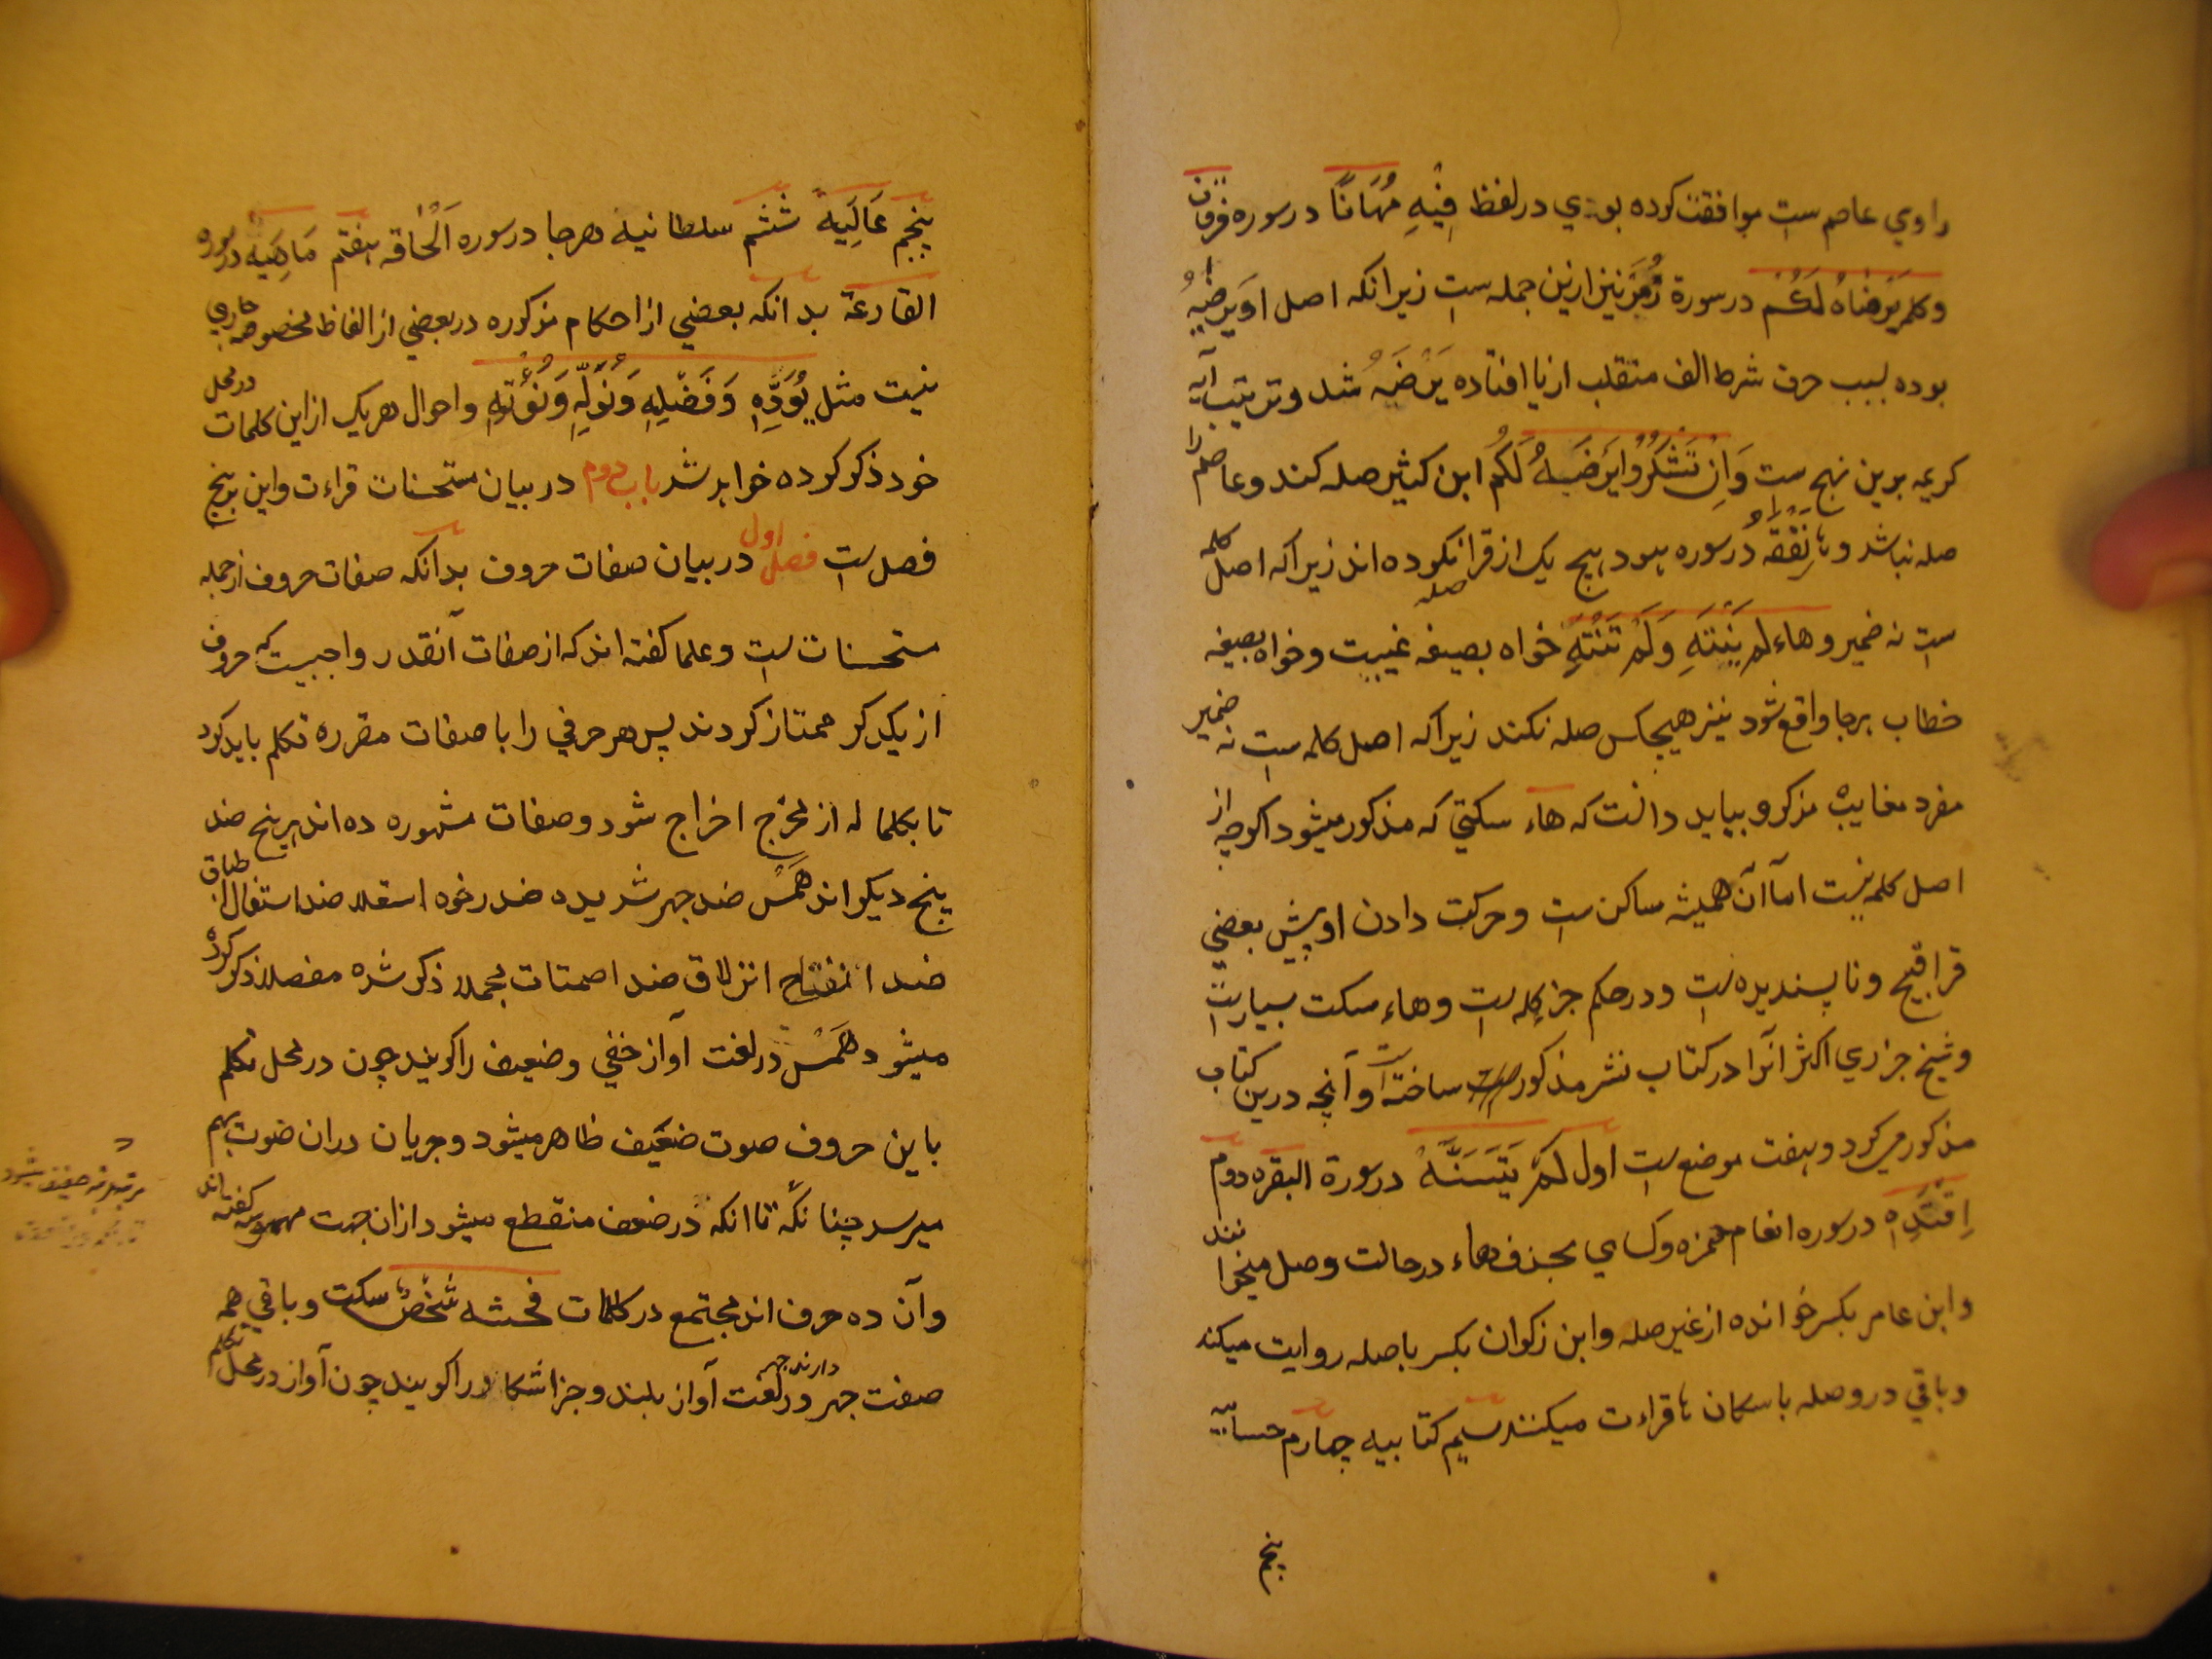 راوي عاصم ست موافقت كرده بودي در لفظ فِيْهِ مُهَانًا در سوره فرقان
وكلمه يَرضَاهُ لَكُم در سورة زُمَرْ نيز ازين جمله ست زيرانكه اصل او يَرضيهُ
بوده بسبب حرف شرط الف منقلب از يا افتاده يَرْضَهُ شد و ترتيب آيه
كريمه برين نهج ست وَاِنْ تَشْكُرُوْا يَرْضَهُ لَكُم ابن كثير صله كند و عاصم را
صله نباشد و ها نَفْقَهُ در سوره هود هيچ يك از قرا صله نكرده اند زيراكه اصل كلمه
ست نه ضمير و هاء لم يَنْتَهِ وَلَمْ تَنْتَهِ خواه بصيغه غيبت و خواه بصيغه
خطاب هر جا واقع شود نيز هيچكس صله نكند زيراكه اصل كلمه ست نه ضمير
مفرد مغايب مذكر و ببايد دانست كه هاء سكتي كه مذكور ميشود اكرچه از
اصل كلمه نيست اما آن هميشه ساكن ست و حركت دادن او پيش بعضي
قرا قبيح و ناپسنديده ست و در حكم جز كلمه ست و هاء سكت بسيارست
وشيخ جزري اكثر انرا در كتاب نشر مذكور ساخته است و آنچه درين كتاب
مذكور مي كردد هفت موضع ست اول لَمْ يَتَسَنَّهْ در سورة البقره دوم
اِقْتَدِه در سوره انعام حمزه و كساي بحذف هاء در حالت وصل ميخوانند
وابن عامر بكسر خوانده از غير صله و ابن زكوان بكسر باصله روايت ميكند
وباقي در وصله باسكان ها قراءت ميكنند سيم كتابيه چهارم حسابيه
پنجم
پنجم عَالِيَه ششم سلطانيه هر جا در سوره اَلْحَاقه هفتم مَاهِيَه در سوره
القارعة بدانكه بعضي از احكام مذكوره در بعضي از الفاظ مخصوصه جاري
نيست مثل يُؤَدِّهِ وَفَصْلِهِ وَنُوَلِّهِ وَنُؤْتِهِ واحوال هر يك از اين كلمات در محل
خود ذكر كرده خواهد شد باب دوم در بيان مستحسنات قراءت واين بر پنج
فصل ست فصل اول در بيان صفات حروف بدانكه صفات حروف از جمله
مستحسنات ست وعلما كفته اند كه از صفات آنقدر واجبست كه حروف
از يكديكر ممتاز كردند پس هر حرفي را با صفات مقرره تكلم بايد كرد
تا بكلماله از مخرج اخراج شود وصفات مشهوره ده اند پنج ضد
پنج ديكر اند هَمَسْ ضد جهر شديده ضد رخوه استعلا ضد استفال اطباق
ضد انفتاح انزلاق ضد اصمتات مجملا ذكر شده مفصلا ذكر كرده
ميشود هَمَسْ در لغت آواز خفي وضعيف را كويند چون در محل تكلم
باين حروف صوت ضعيف ظاهر ميشود و جريان دران صوت بهم
ميرسد چنانكه تا انكه در ضعف منقطع ميشود ازان جهت مهموسه كفته اند
وآن ده حرف اند مجتمع در كلمات فحثه شَخْصٌ سكت وباقي همه
صفت جهر دارند جهر در لغت آواز بلند و جز اشكارا را كويند چون آواز در محل تكلم